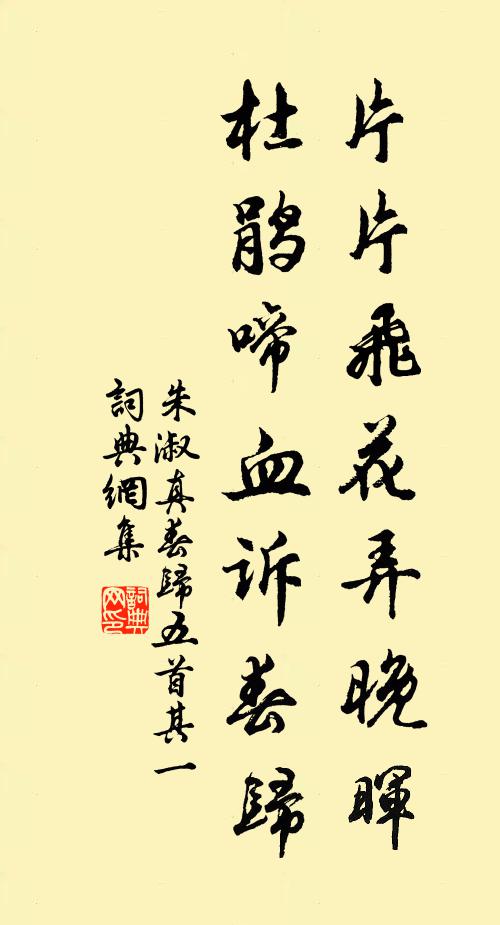 片片飛花弄晚暉
杜鵑啼血訴春歸
朱淑真春歸五首其一
詞典網集
詞典网印